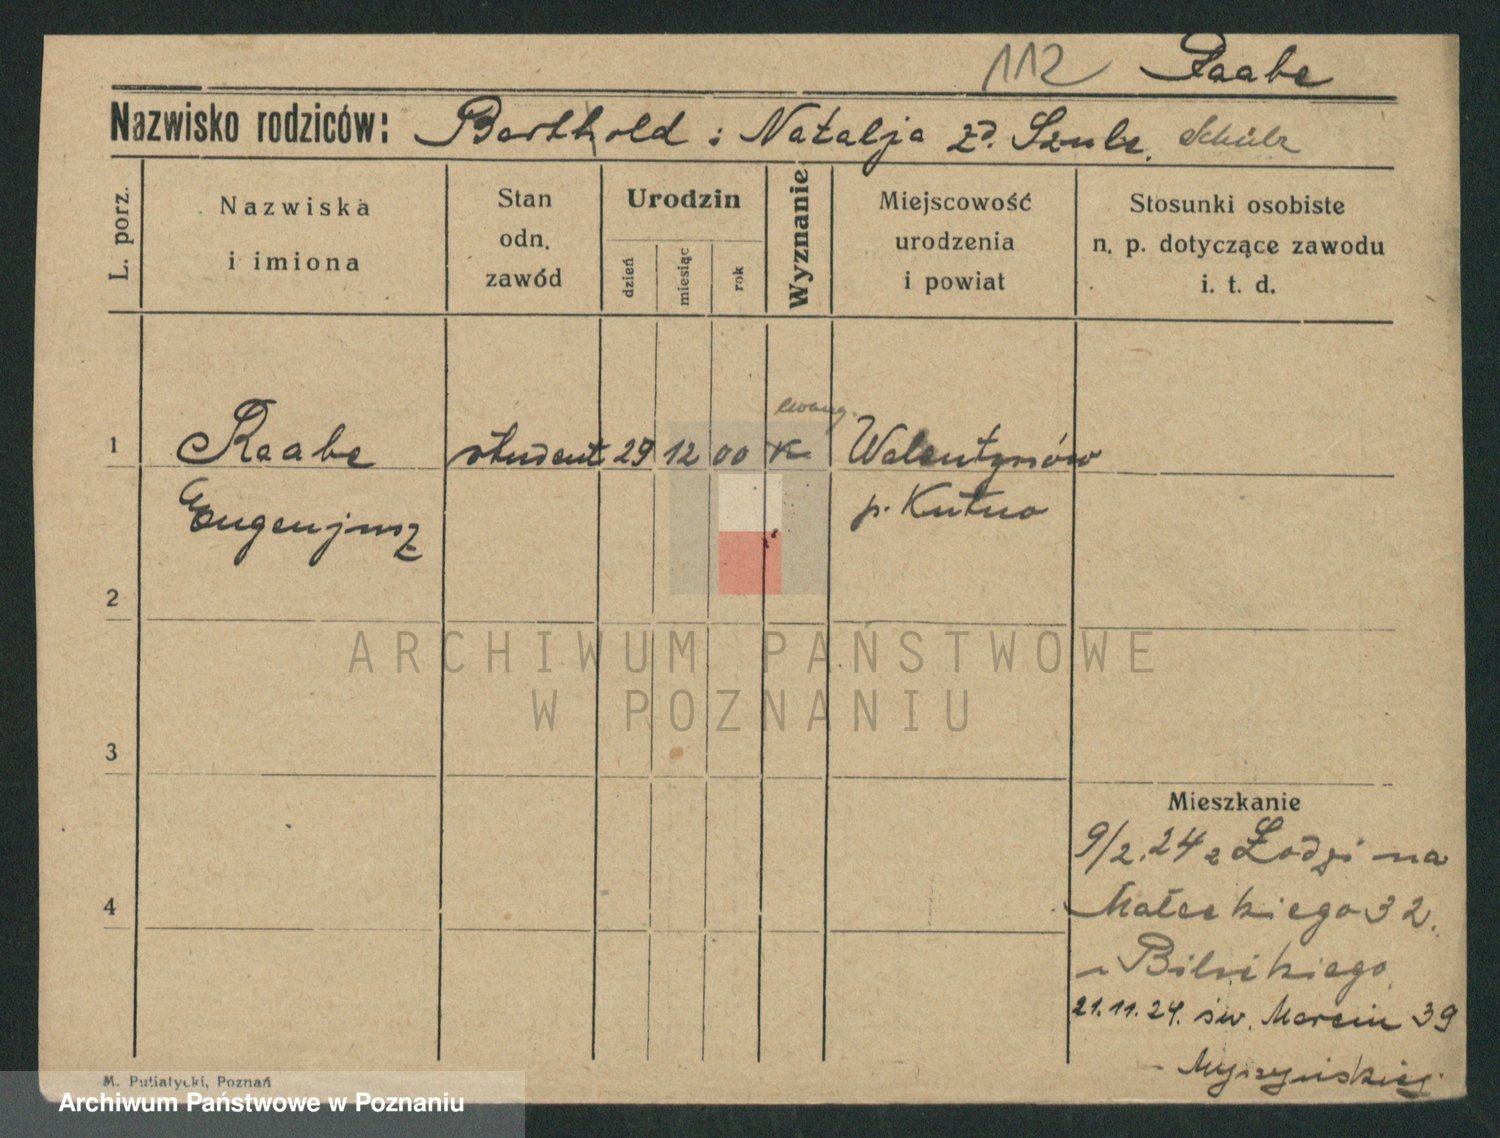 112 Raabe
Nazwisko rodziców: Berthold i Natalja zd. Szulc. Schulz
L. porz.
Nazwiska
i imiona
Stan
odn.
zawód
Urodzin
dzień
miesiąc
rok
Wyznanie
Miejscowość
urodzenia
i powiat
Stosunki osobiste
n. p. dotyczące zawodu
i. t. d.
ewang.
1 Raabe student 29 12 00 K Walentynów
Eugenjusz p. Kutno
2
3
4
ARCHIWUM PAŃSTWOWE
W POZNANIU
Mieszkanie
9/2.24 z Łodzi na
Małeckiego 32.
u Bilskiego
21.11.24. św. Marcin 39
M. Putiatycki, Poznań
Archiwum Państwowe w Poznaniu